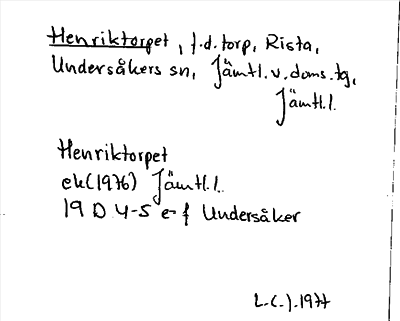 Henriktorpet, f.d. torp, Rista,
Undersåkers sn, Jämtl. v. doms. tg,
Jämtl. l.
Henriktorpet
ek (1976) Jämtl. l.
19 D 4-5 e-f Undersåker
1977